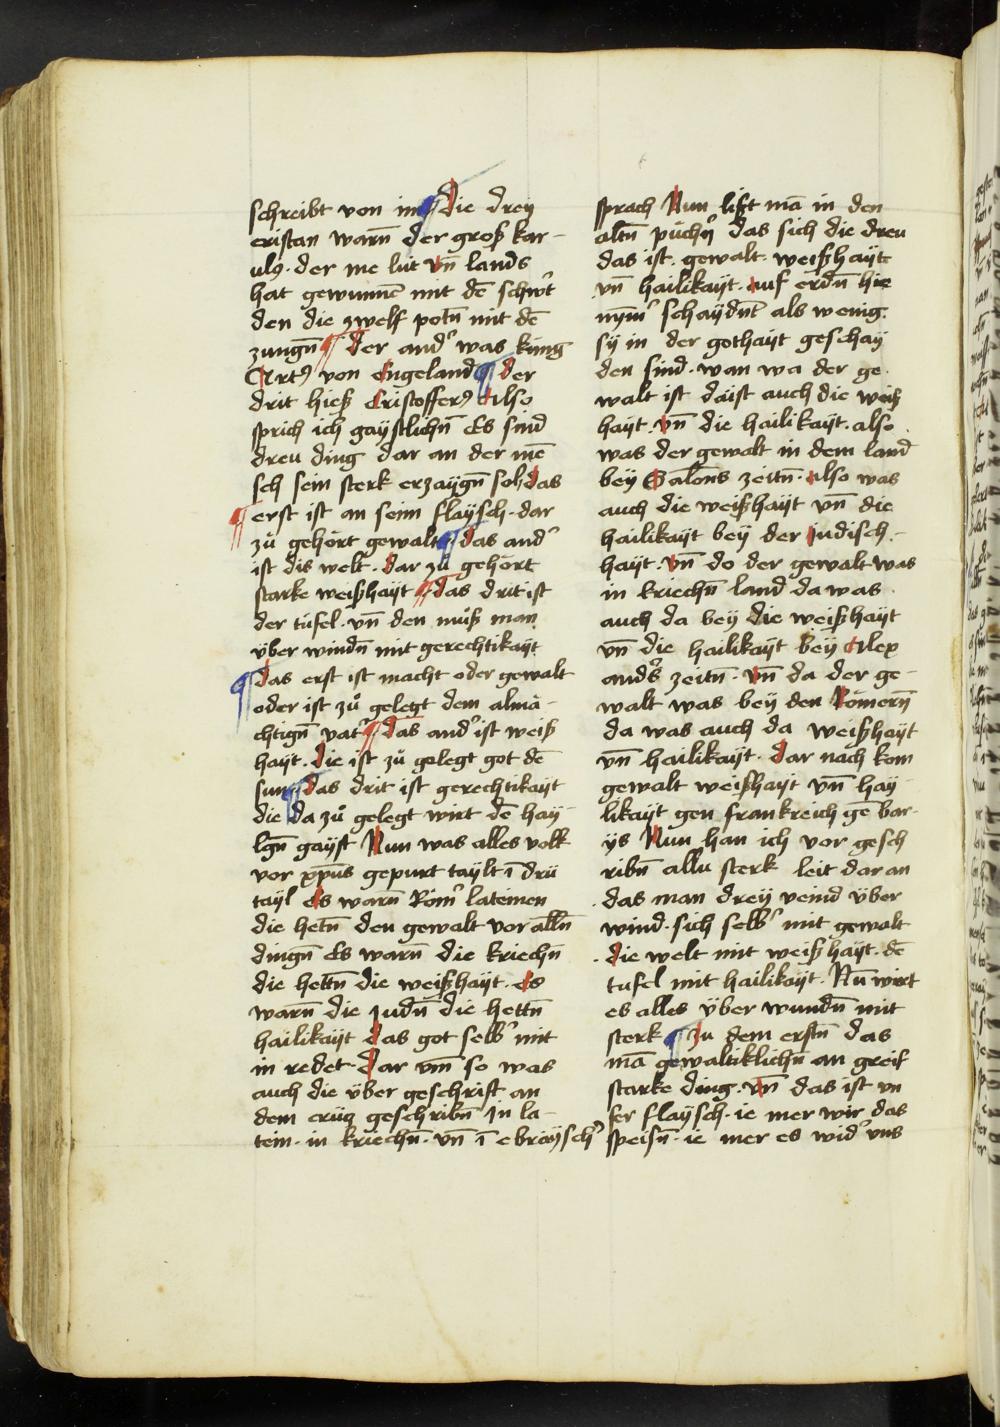 schreibt von im ¶ Die dreÿ
cristan warn̄ der groß kar-
ulꝯ. der me lüt vn̄ lands
hat gewunnē mit dē schwt᷑
den die zwelf potn̄ mit dē
zungn̄ ¶ der and᷑ was küng
Artꝯ von Engeland ¶ der
drit hieß Cristofferꝯ Also
sprich ich gaÿstlichn̄ Es sind
dreu ding dar an der mē
sch sein sterk erzaÿgn̄ sol das
¶ erst ist an seim flaÿsch. dar
zů gehört gewalt ¶ das and᷑
ist dis welt. dar zů gehört
starke weißhaÿt ¶ das drit ist
der tüfel. vn̄ den můß man
über windn̄ mit gerechtikaÿt
¶ das erst ist macht oder gewalt
oder ist zů gelegt dem almä-
chtign̄ vat᷑ ¶ das and᷑ ist weiß
haÿt. die ist zů gelegt got dē
sun ¶ das drit ist gerechtikaÿt
die da zů gelegt wirt dē haÿ
lgn̄ gaÿst Nun was alles volk
vor xp̄us gepurt taÿlt ī drü
taÿl Es warn̄ Röm᷑ lateinen
die hetn̄ den gewalt vor alln̄
dingn̄ Es warn̄ die kriechn̄
die hettn̄ die weißhaÿt. Es
warn̄ die Judn̄ die hettn̄
hailikaÿt das got selb᷑ mit
in redet Dar vm̄ so was
auch die über geschrift an
dem crüg geschribn̄ Jn la-
tein. in kriechn̄. vn̄ ī ebraÿsch᷑
sprach Nun lißt mā in den
altn̄ püchn̄ das sich die dreu
das ist. gewalt. weißhaÿt
vn̄ hailikaÿt. auf erdn̄ hie
nÿm᷑ schaÿdn̄t als wenig
sÿ in der gothaÿt geschaÿ
den sind. wan wa der ge
walt ist däist auch die weiß
haÿt. vn̄ die hailikaÿt. also
was der gewalt in dem land
beÿ Salōns zeitn̄. also was
auch die weißhaÿt vn̄ die
hailikaÿt beÿ der Judisch-
haÿt. vn̄ do der gewalt was
in kriechn̄ land da was
auch da beÿ die weißhaÿt
vn̄ die hailikaÿt beÿ Alex
and᷑s zeitn̄. vn̄ da der ge-
walt was beÿ den Römern̄
da was auch da weißhaÿt
vn̄ hailikaÿt. Dar nach kom
gewalt weißhaÿt vn̄ haÿ
likaÿt gen frankreich gē bar-
ÿs Nun han ich vor gesch
ribn̄ allu sterk leit dar an
das man dreÿ veind über
wind. sich selb᷑ mit gewalt
. die welt mit weißhaÿt. dē
tufel mit hailikaÿt. Nū wirt
es alles über wundn̄ mit
sterk ¶ Jn dem erstn̄ das
mā gewaltiklichn̄ an greif
starke ding. vn̄ das ist vn
ser flaÿsch. ie mer wir das
speisn̄. ie mer es wid᷑ vns